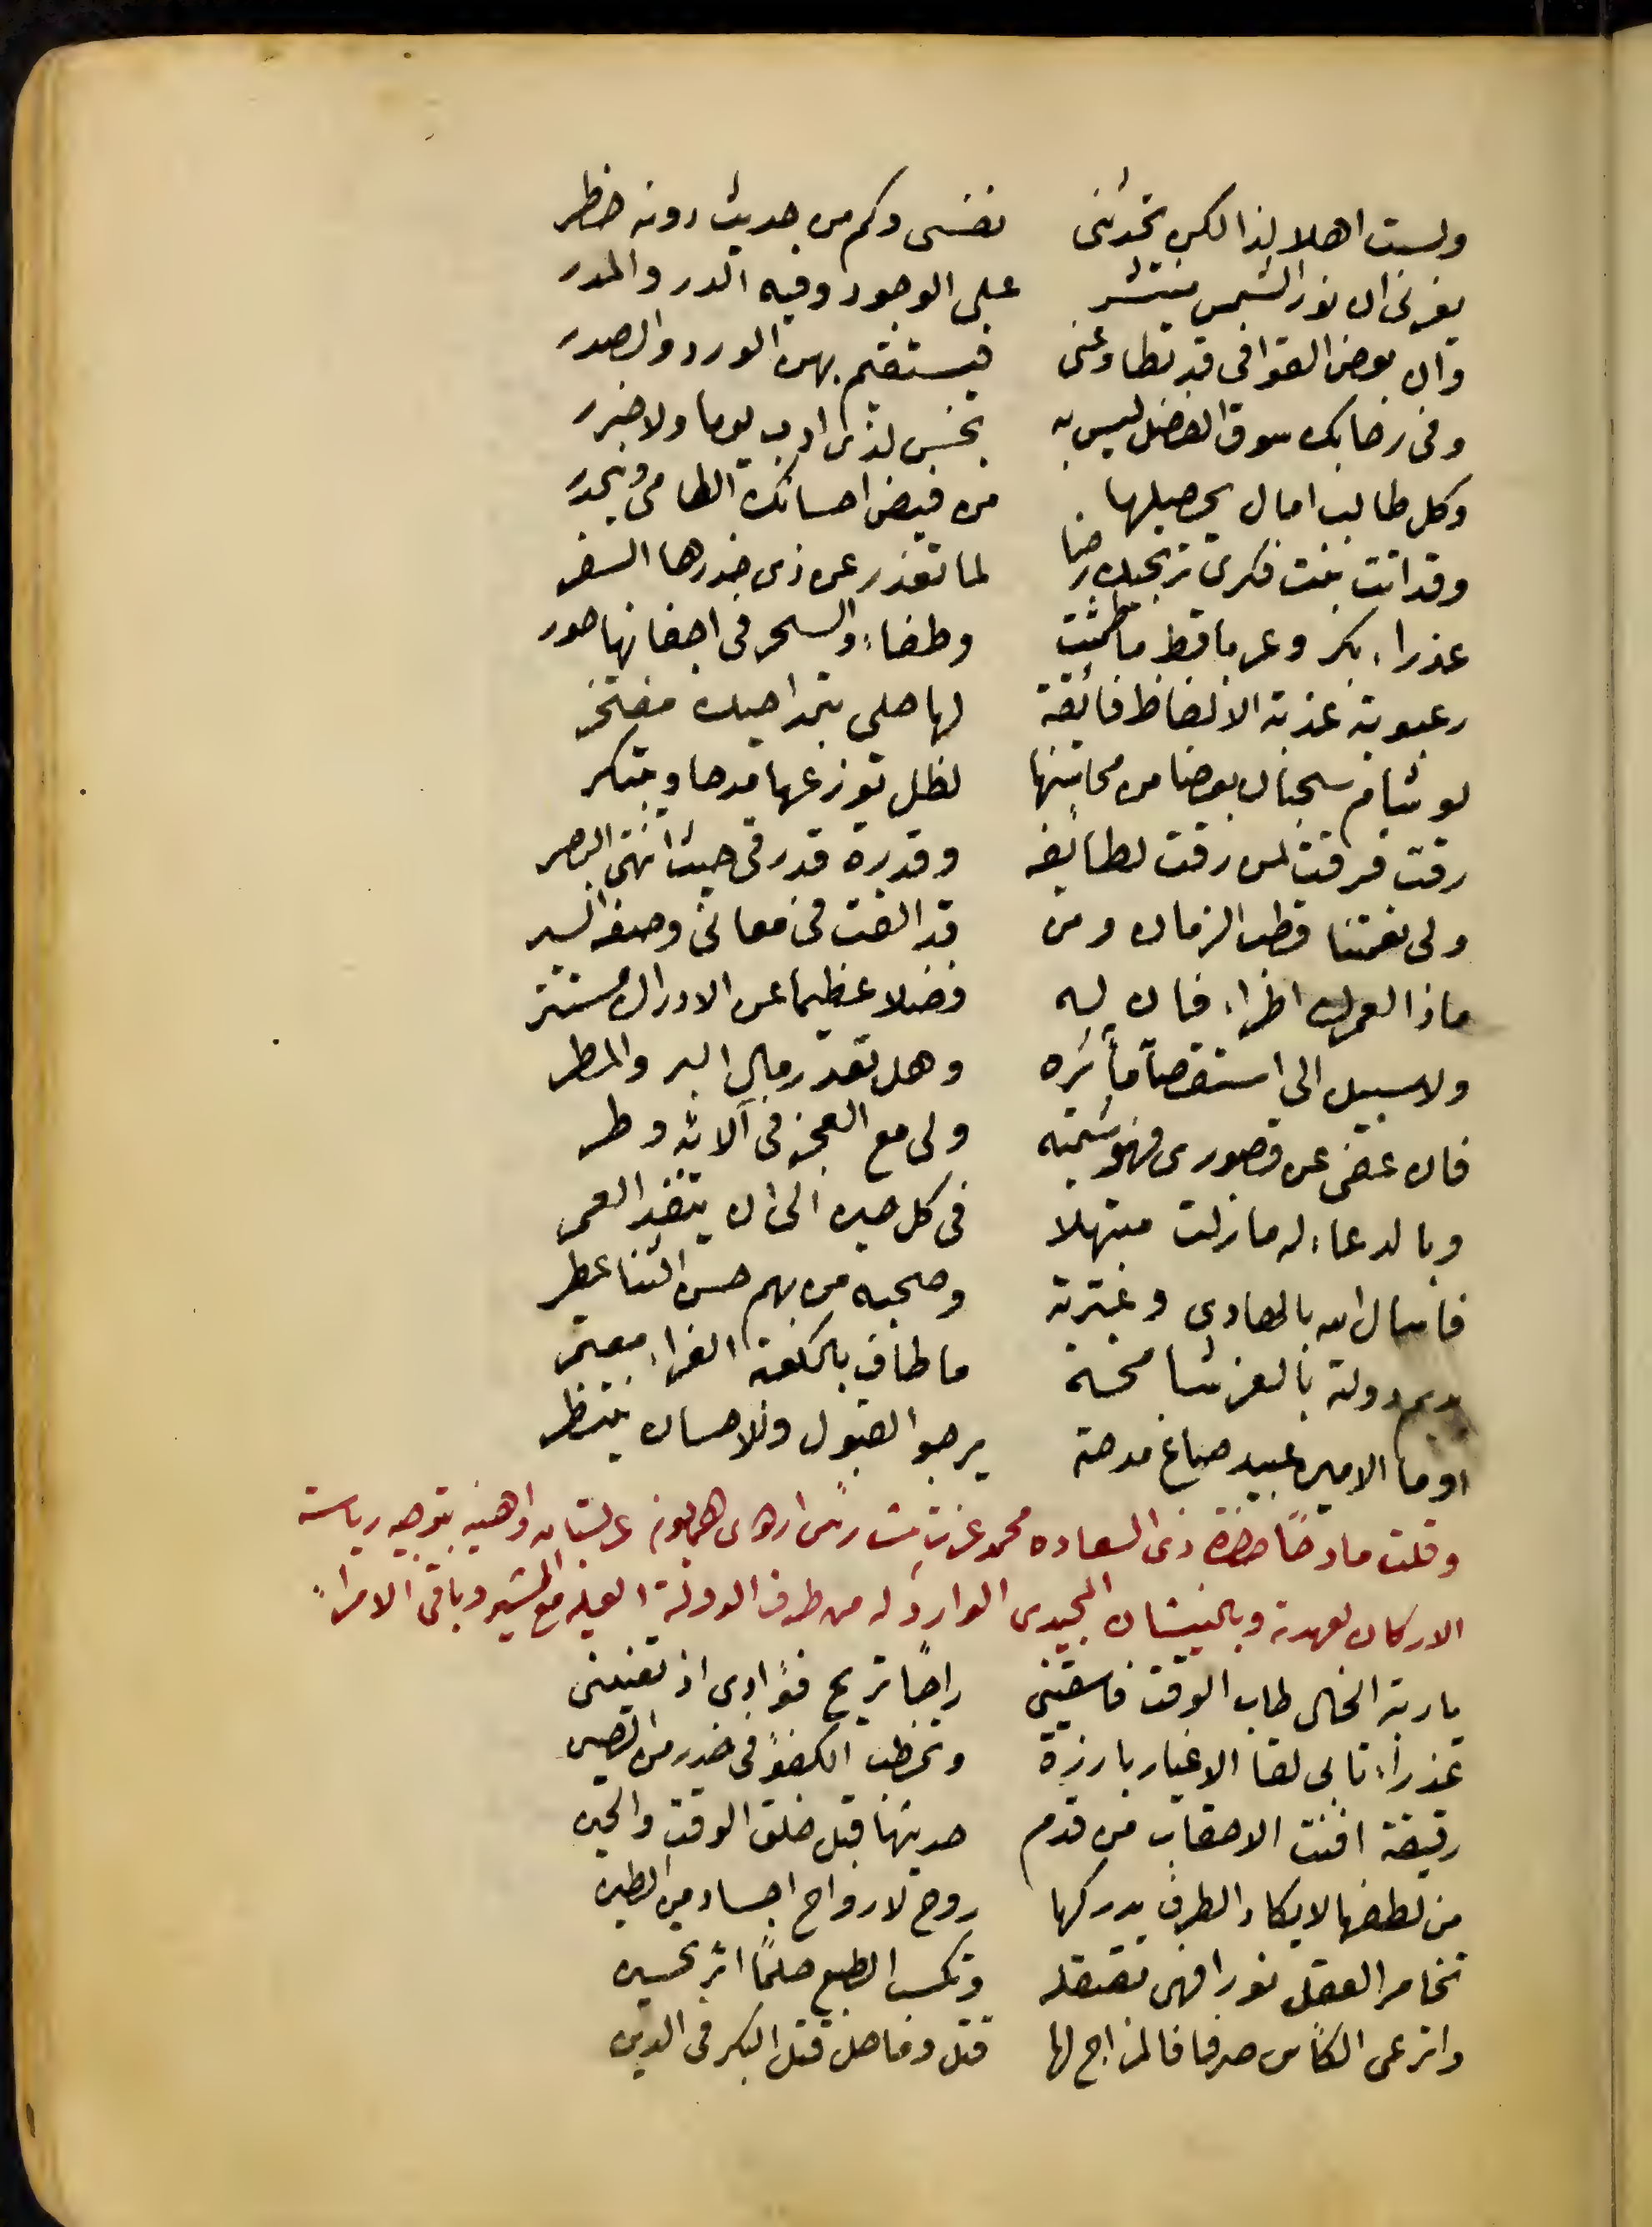 ولست اهلا لذا لكن تحدثنى نفسى وكم من حديث دونه خطر
يغرنى ان نور الشمس منتشر على الوجود وفيه الدر والمدر
وان بعض القوافى قد تطاوعنى فيستقيم بهن الورد والصدر
وفى رحابك سوق الفضل ليس به بخس لذى ادب يوما ولا ضرر
وكل طالب امال يحصلها من فيض احسانك الطامى وينحدر
وقد اتت بنت فكرى ترتجيك رضا لما تعذر عن ذى خدرها السفر
عذراء بكر وعربا قط ما طمثت وطفاء والسحر فى اجفانها حور
رعبوبة عذبة الالفاظ فائقة لها حلى بتمداحيك مفتخر
لو شام سحبان بعضا من محاسنها لظل يوزعها مدحا ويبتكر
رقت فرقت لمن رقت لطائفه وقدره قد رقى حيث انتهى البصر
ولى نعمتنا قطب الزمان ومن قد الفت فى معانى وصفه السير
ماذا لعمرك اطراء فان له فضلا عظيما عن الادراك مستتر
ولا سبيل الى استقصا مأثره وهل تعد رمال البر والمطر
فان عفى عن قصورى فهو شيمته ولى مع العجز فى آلائه وطر
وبالدعاء له مازلت مبتهلا فى كل حين الى ان ينفد العمر
فاسال الله بالهادى وعترته وصحبه من بهم حسن الثنا عطر
يديم دولة بالعز شامخة ما طاف بالكعبة الغراء معتمر
اوما الامين عبيد صاغ مدحة يرجو القبول وللاحسان ينتظر
وقلت مادحًا حضرة ذى السعاده محمد عزت رئس اردوى همايون عربستان واهنيه بتوجيه رياسة
الاركان لعهدته وبالنيشان المجيدى الوارد له من طرف الدولة العليه مع المشير وباقى الامراء
ياربة الخال طاب الوقت فاسقينى راحًا تريح فؤادى اذ تغنينى
عذراء تابى لقا الاغيار بارزة وتخطب الكفؤ فى خدر من الصين
رقيقة افنت الاحقاب من قدم حديثها قبل خلق الوقت والحين
من لطفها لا يكاد الطرف يدركها روح لارواح اجساد من الطين
تخامر العقل نورا فهى تعقله وتكسب الطبع حلمًا اثر تحسين
واترعى الكاس صرفا فالمزاج لها قتل وما حل قتل البكر فى الدين